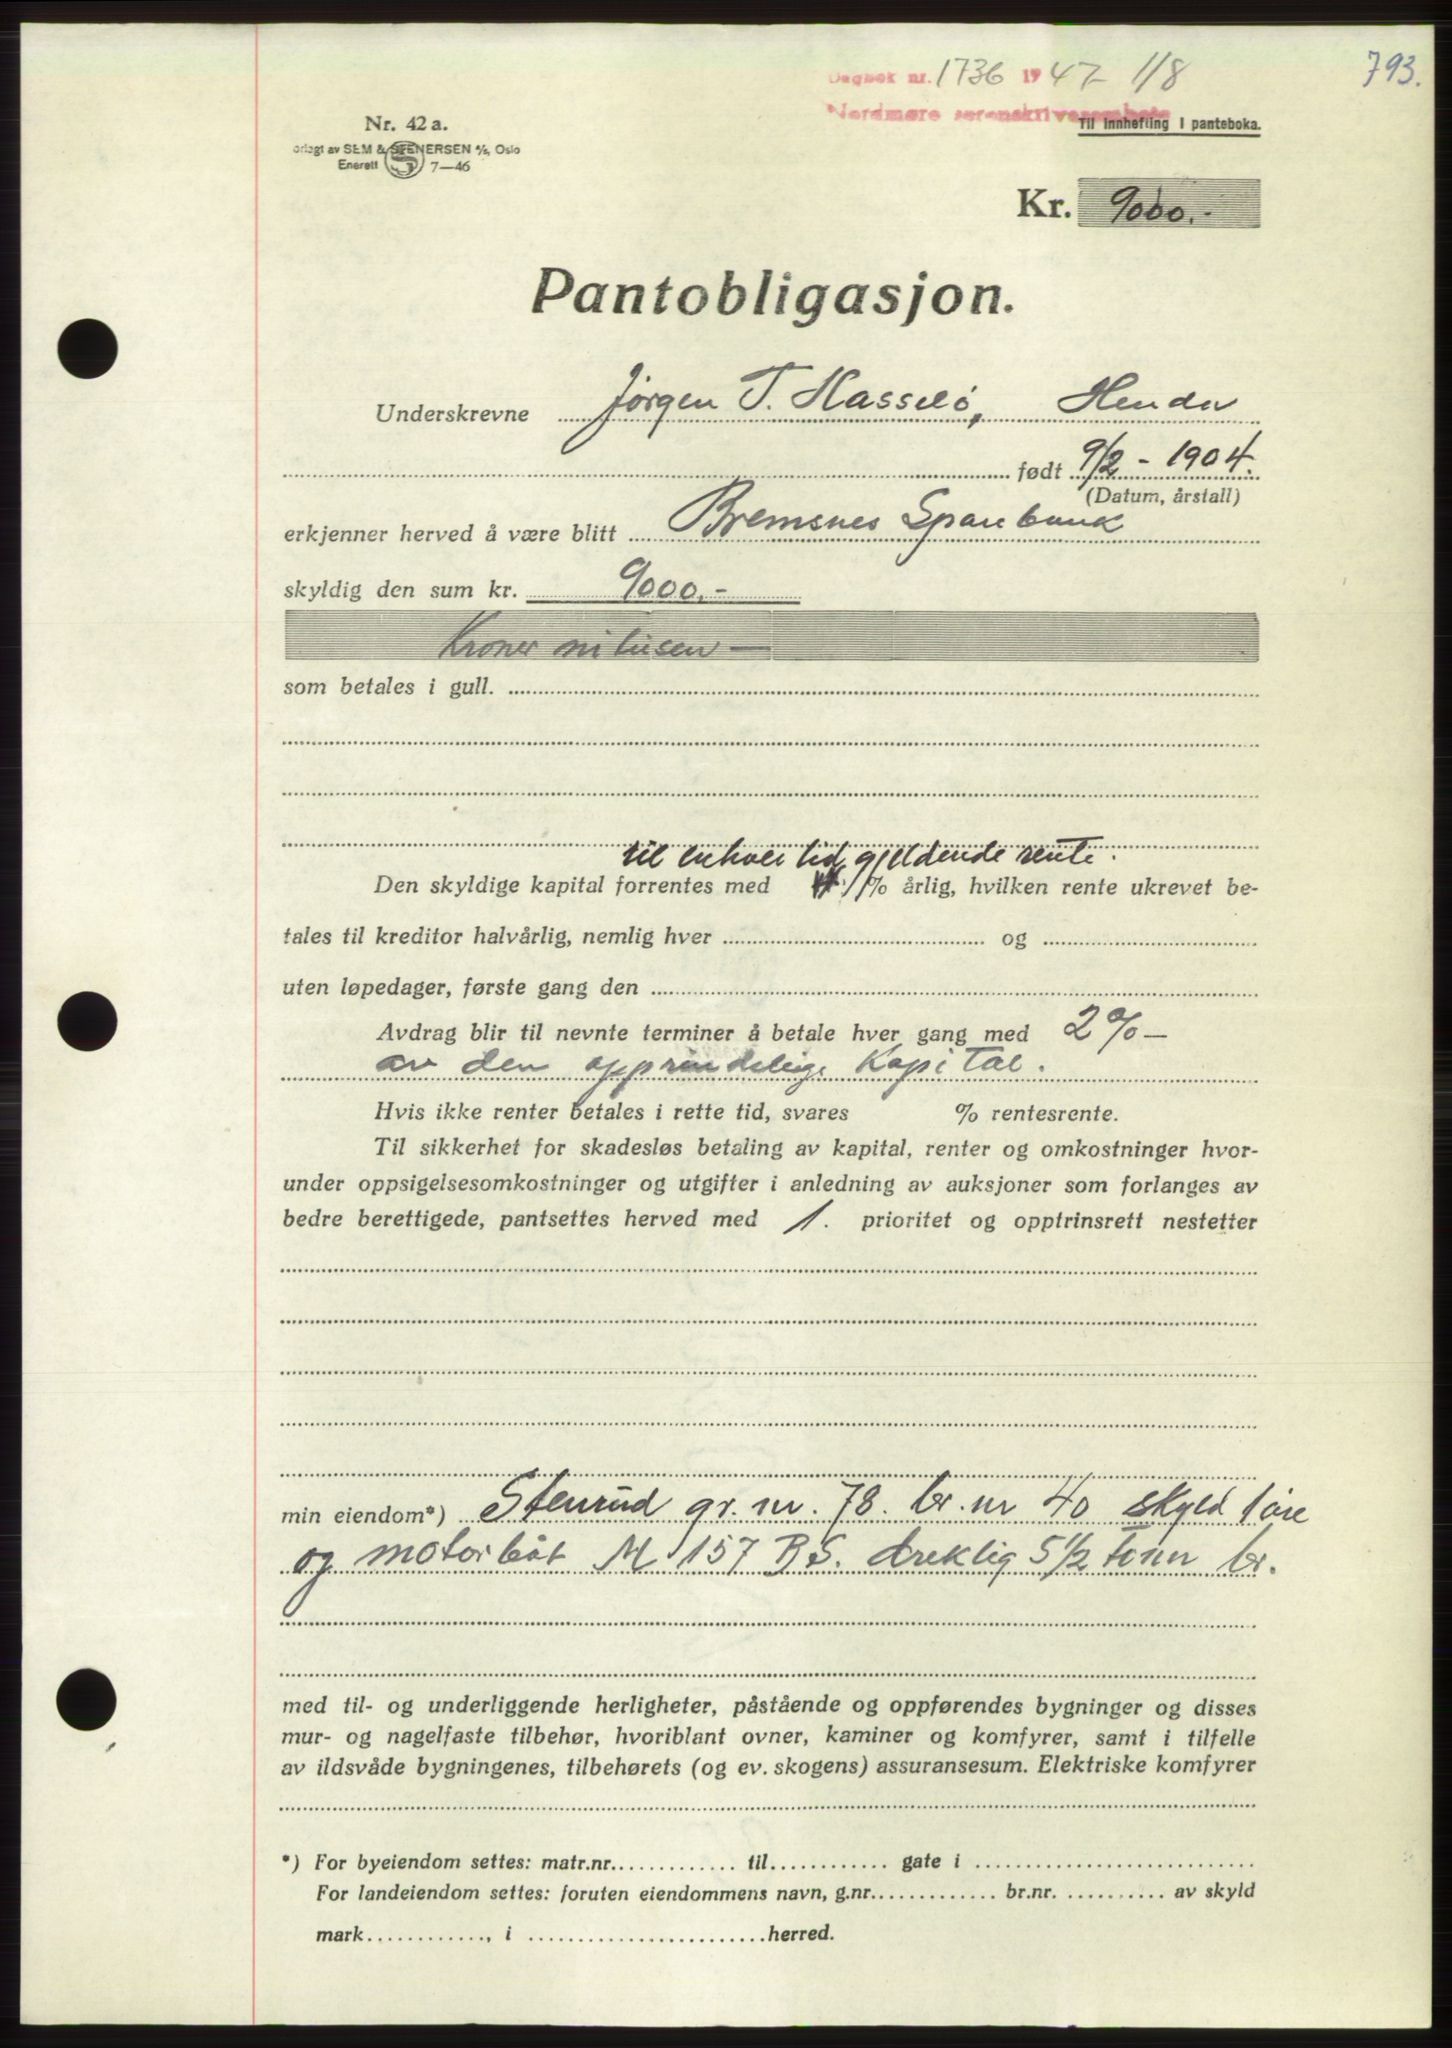 793.
Dagbok nr. 1736 1947 1/8
Nordmøre sorenskriverembete
Til innhefting i panteboka.
Nr. 42 a.
orlagt av SEM & STENERSEN A/S, Oslo
Enerett S 7—46
Kr. 9000.-
Pantobligasjon.
Underskrevne Jørgen T. Hasselø, Henda
født 9/2 - 1904.
(Datum, årstall)
erkjenner herved å være blitt Bremsnes Sparebank
skyldig den sum kr. 9000.-
Kroner nitusen —
som betales i gull.
til enhver tid gjeldende rente.
Den skyldige kapital forrentes med % årlig, hvilken rente ukrevet be-
tales til kreditor halvårlig, nemlig hver og
uten løpedager, første gang den
Avdrag blir til nevnte terminer å betale hver gang med 2% —
av den opprindelige Kapital.
Hvis ikke renter betales i rette tid, svares % rentesrente.
Til sikkerhet for skadesløs betaling av kapital, renter og omkostninger hvor-
under oppsigelsesomkostninger og utgifter i anledning av auksjoner som forlanges av
bedre berettigede, pantsettes herved med 1. prioritet og opptrinsrett nestetter
min eiendom*) Stenrud gr. nr. 78. br. nr 40 skyld 1 øre
og motorbåt M 157 BS. drektig 5 1/2 tonn br.
med til- og underliggende herligheter, påstående og oppførendes bygninger og disses
mur- og nagelfaste tilbehør, hvoriblant ovner, kaminer og komfyrer, samt i tilfelle
av ildsvåde bygningenes, tilbehørets (og ev. skogens) assuransesum. Elektriske komfyrer
*) For byeiendom settes: matr.nr. til gate i
For landeiendom settes: foruten eiendommens navn, g.nr. br.nr. av skyld
mark , i herred.